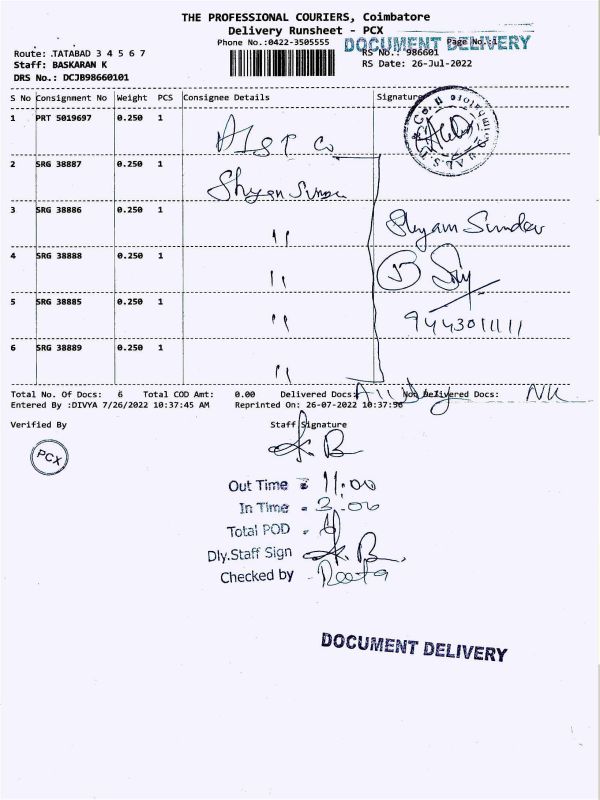 THE PROFESSIONAL COURIERS, Coimbatore
Delivery Runsheet - PCX
Phone No.:0422-3505555
DOCUMENT DELIVERY
Page No.:1
Route: .TATABAD 3 4 5 6 7
RS No.: 986601
Staff: BASKARAN K
RS Date: 26-Jul-2022
DRS No.: DCJB98660101
S No Consignment No Weight PCS Consignee Details Signature
1 PRT 5019697 0.250 1
2 SRG 38887 0.250 1
3 SRG 38886 0.250 1 "
Shyam Sunder
4 SRG 38888 0.250 1 "
5
5 SRG 38885 0.250 1 "
9443011111
6 SRG 38889 0.250 1 "
Total No. Of Docs: 6 Total COD Amt: 0.00 Delivered Docs: Non Delivered Docs:
Entered By :DIVYA 7/26/2022 10:37:45 AM Reprinted On: 26-07-2022 10:37:56
Verified By Staff Signature
PCX
Out Time = 11.00
In Time = 3.00
Total POD =
Dly.Staff Sign
Checked by
DOCUMENT DELIVERY